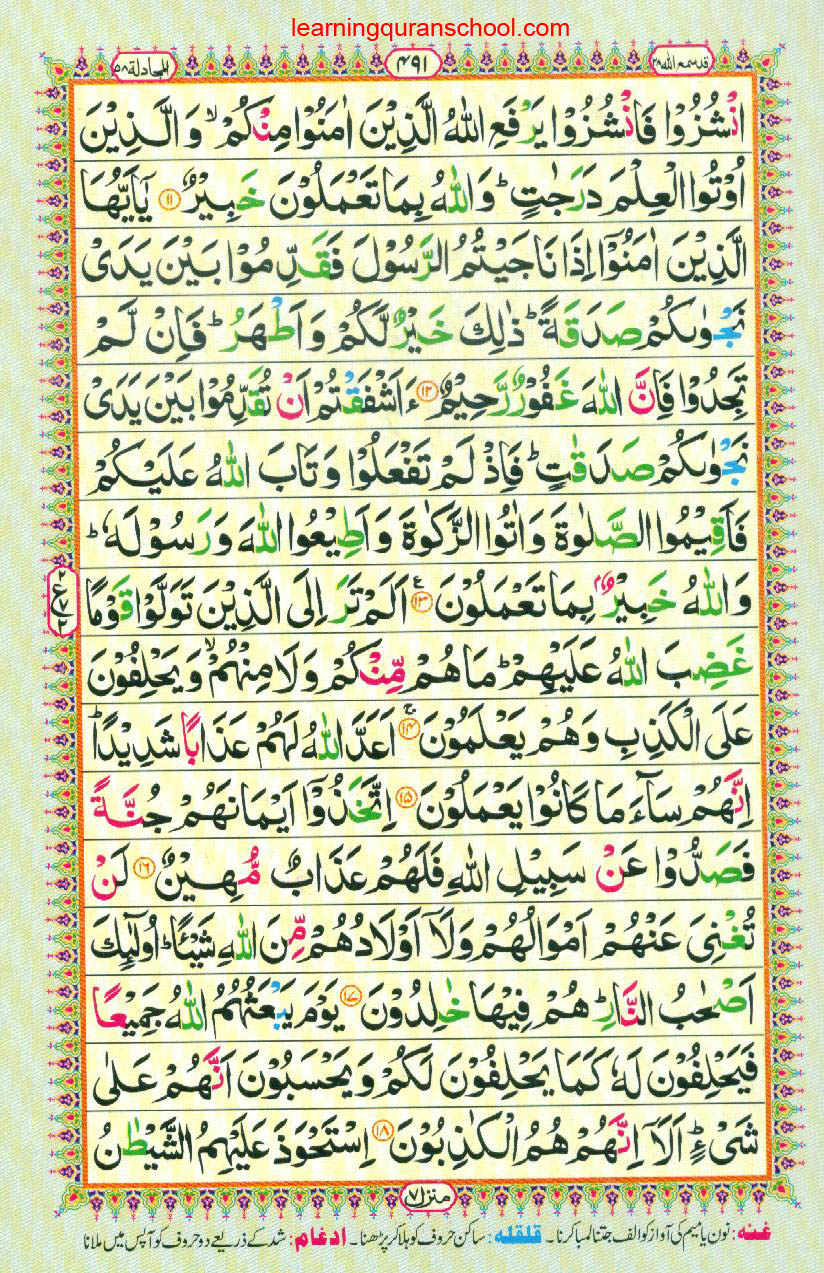 learningquranschool.com
قد سمع الله ٢٨
٤٩١
المجادلة ٥٨
انْشُزُوْا فَانْشُزُوْا يَرْفَعِ اللّٰهُ الَّذِيْنَ اٰمَنُوْا مِنْكُمْ ۙ وَالَّذِيْنَ
اُوْتُوا الْعِلْمَ دَرَجٰتٍ ؕ وَاللّٰهُ بِمَا تَعْمَلُوْنَ خَبِيْرٌ ۝۱۱ يٰۤاَيُّهَا
الَّذِيْنَ اٰمَنُوْۤا اِذَا نَاجَيْتُمُ الرَّسُوْلَ فَقَدِّمُوْا بَيْنَ يَدَیْ
نَجْوٰىكُمْ صَدَقَةً ؕ ذٰلِكَ خَيْرٌ لَّكُمْ وَاَطْهَرُ ؕ فَاِنْ لَّمْ
تَجِدُوْا فَاِنَّ اللّٰهَ غَفُوْرٌ رَّحِيْمٌ ۝۱۲ ءَاَشْفَقْتُمْ اَنْ تُقَدِّمُوْا بَيْنَ يَدَیْ
نَجْوٰىكُمْ صَدَقٰتٍ ؕ فَاِذْ لَمْ تَفْعَلُوْا وَتَابَ اللّٰهُ عَلَيْكُمْ
فَاَقِيْمُوا الصَّلٰوةَ وَاٰتُوا الزَّكٰوةَ وَاَطِيْعُوا اللّٰهَ وَرَسُوْلَهٗ ؕ
وَاللّٰهُ خَبِيْرٌۢ بِمَا تَعْمَلُوْنَ ۝۱۳ اَلَمْ تَرَ اِلَى الَّذِيْنَ تَوَلَّوْا قَوْمًا
غَضِبَ اللّٰهُ عَلَيْهِمْ ؕ مَا هُمْ مِّنْكُمْ وَلَا مِنْهُمْ ۙ وَيَحْلِفُوْنَ
عَلَى الْكَذِبِ وَهُمْ يَعْلَمُوْنَ ۝۱۴ اَعَدَّ اللّٰهُ لَهُمْ عَذَابًا شَدِيْدًا ؕ
اِنَّهُمْ سَآءَ مَا كَانُوْا يَعْمَلُوْنَ ۝۱۵ اِتَّخَذُوْۤا اَيْمَانَهُمْ جُنَّةً
فَصَدُّوْا عَنْ سَبِيْلِ اللّٰهِ فَلَهُمْ عَذَابٌ مُّهِيْنٌ ۝۱۶ لَنْ
تُغْنِیَ عَنْهُمْ اَمْوَالُهُمْ وَلَاۤ اَوْلَادُهُمْ مِّنَ اللّٰهِ شَيْئًا ؕ اُولٰٓئِكَ
اَصْحٰبُ النَّارِ ؕ هُمْ فِيْهَا خٰلِدُوْنَ ۝۱۷ يَوْمَ يَبْعَثُهُمُ اللّٰهُ جَمِيْعًا
فَيَحْلِفُوْنَ لَهٗ كَمَا يَحْلِفُوْنَ لَكُمْ وَيَحْسَبُوْنَ اَنَّهُمْ عَلٰى
شَیْءٍ ؕ اَلَاۤ اِنَّهُمْ هُمُ الْكٰذِبُوْنَ ۝۱۸ اِسْتَحْوَذَ عَلَيْهِمُ الشَّيْطٰنُ
منزل ۷
غنه: نون یا میم کی آواز کو الف جتنا لمبا کرنا ۔ قلقله: ساکن حروف کو ہلا کر پڑھنا ۔ ادغام: شد کے ذریعے دو حروف کو آپس میں ملانا